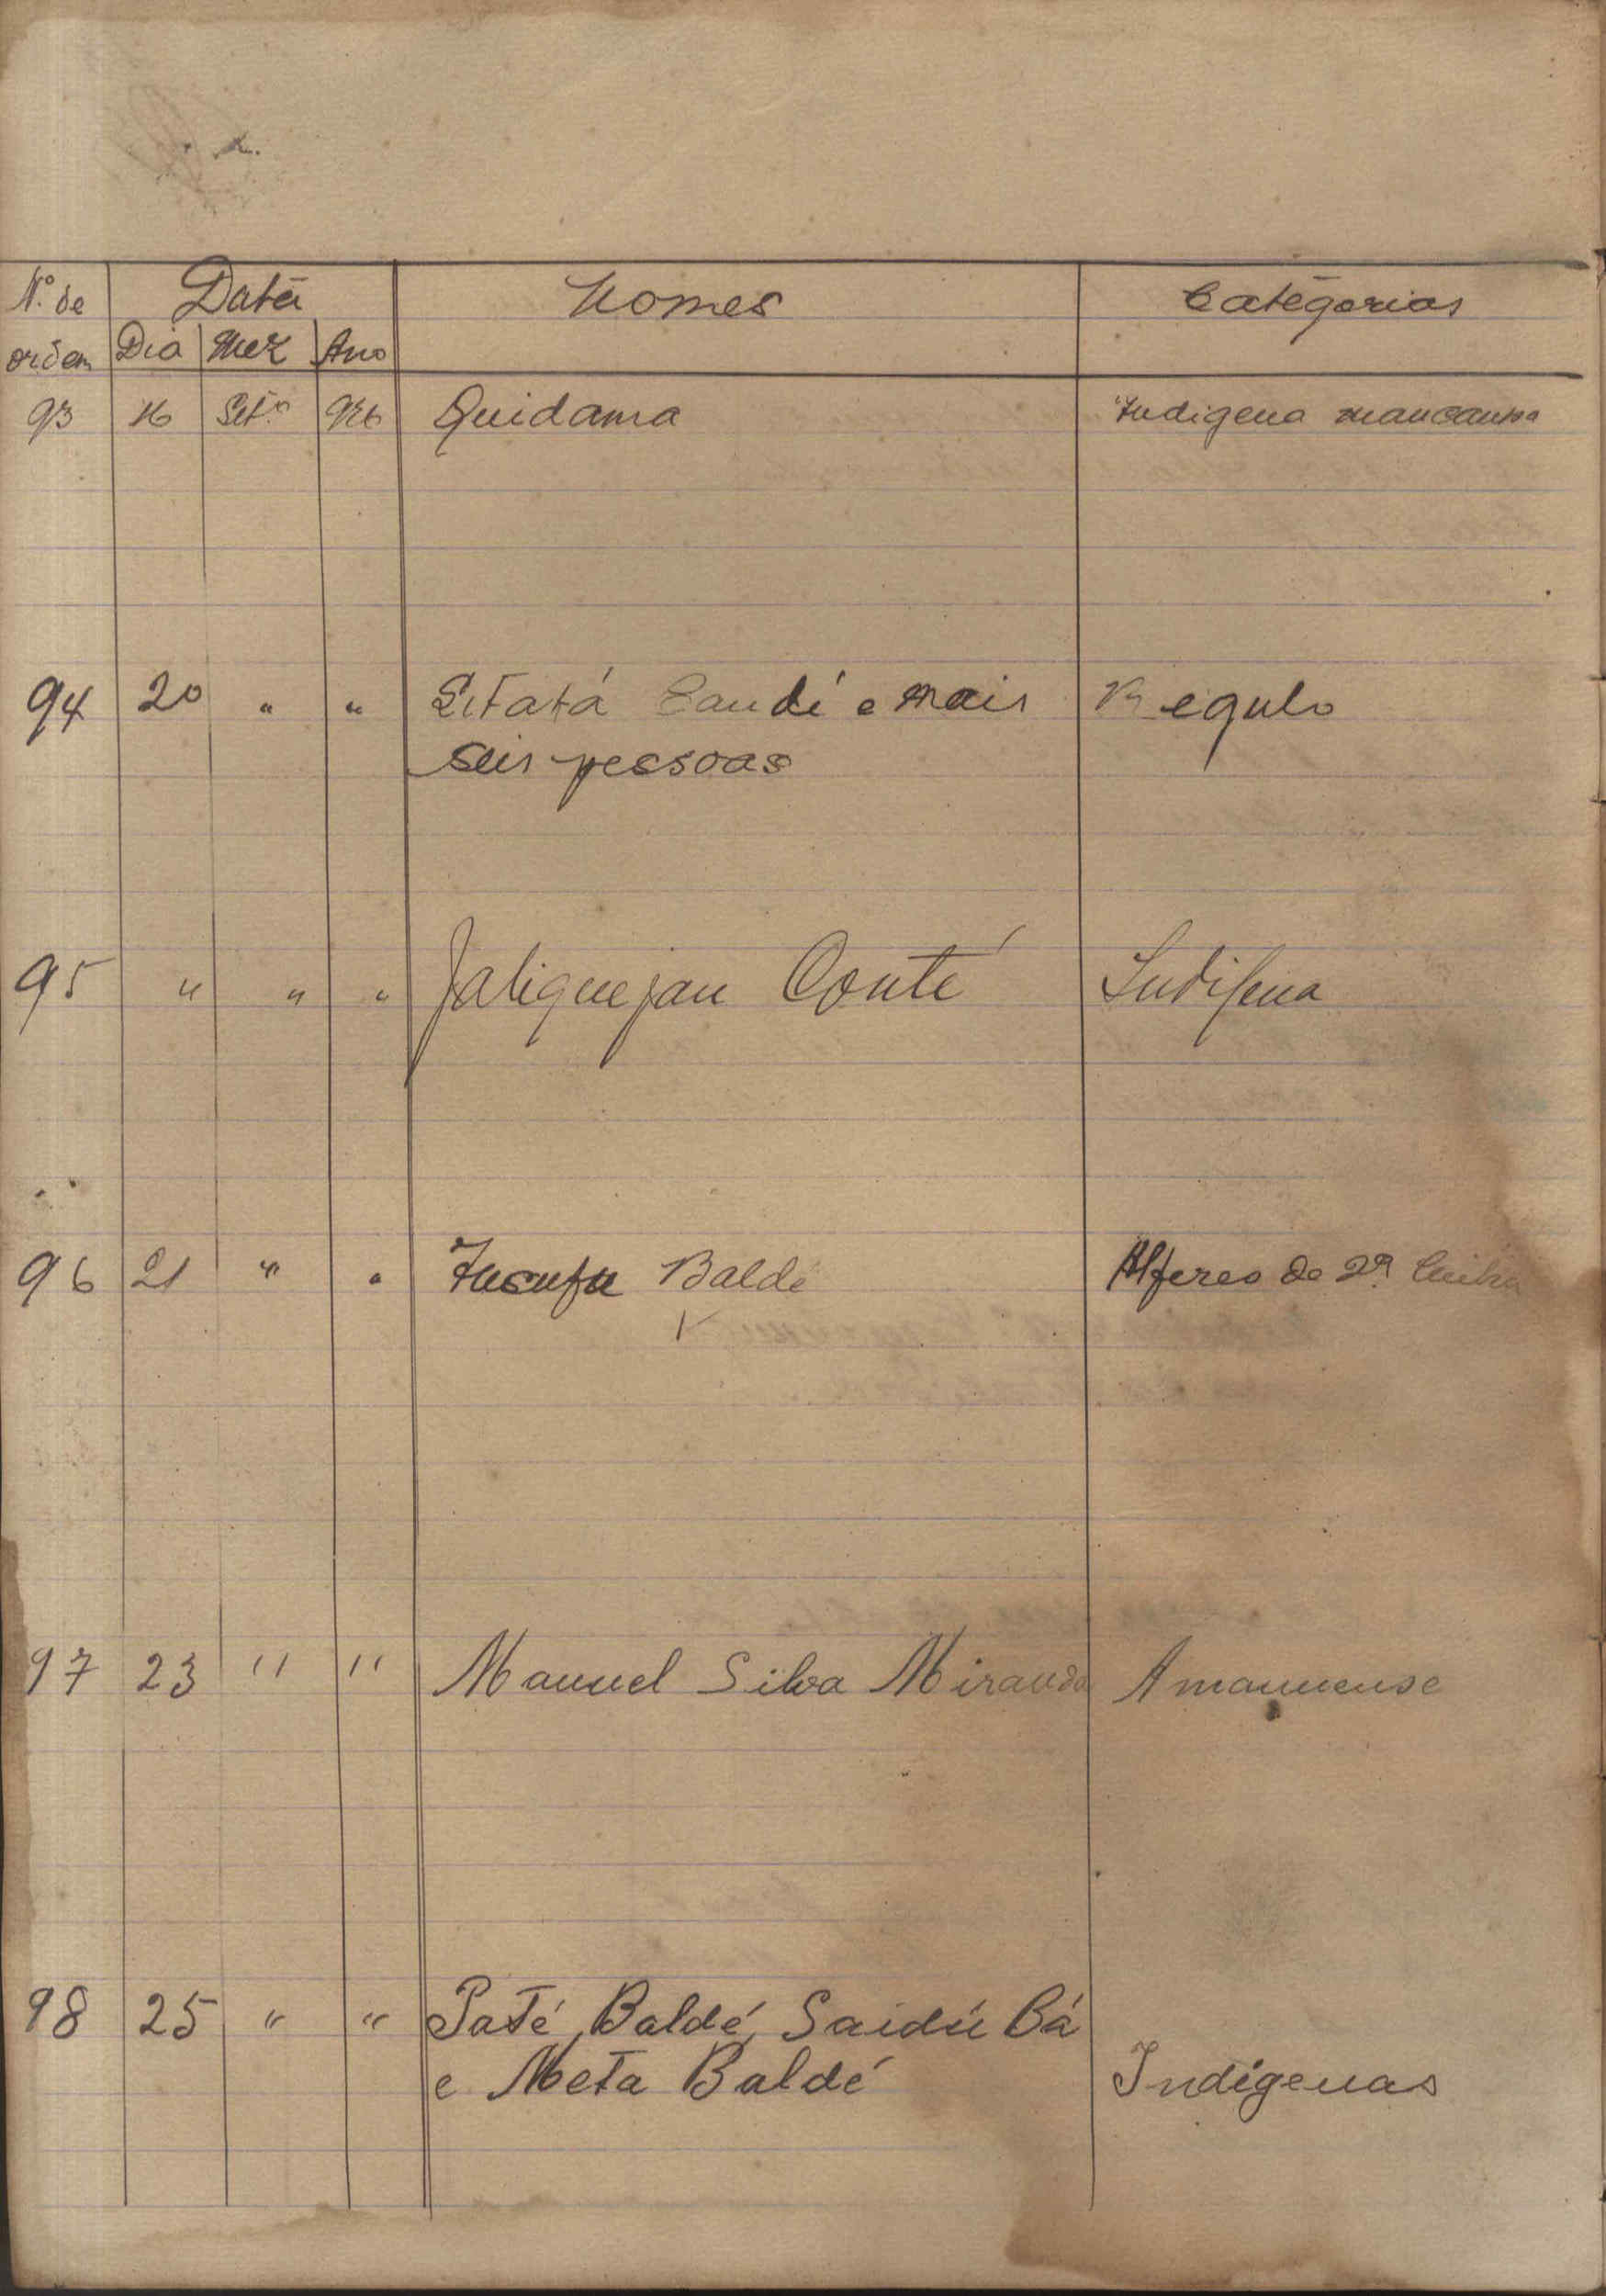 Nº de Data Nomes Categorias
ordem Dia Mez Ano
93 16 Setº 926 Quidama Indigena mancanha
94 20 " " Sitatá Candé e mais Regulo
seis pessoas
95 " " " Jaliquejan Conté Indigena
96 21 " " Iusufu Baldé Alferes de 2ª linha
97 23 " " Manuel Silva Miranda Amanuense
98 25 " " Paté Baldé, Saidú Bá
e Meta Baldé Indigenas